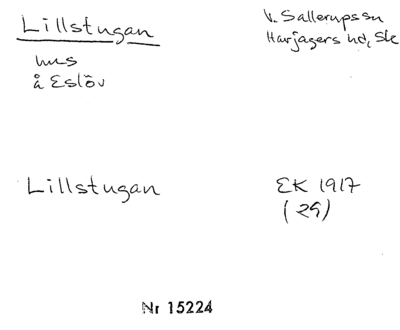 Lillstugan
V. Sallerups sn
Harjagers hd, Sk
hus
å Eslöv
Lillstugan
EK 1917
(29)
Nr 15224